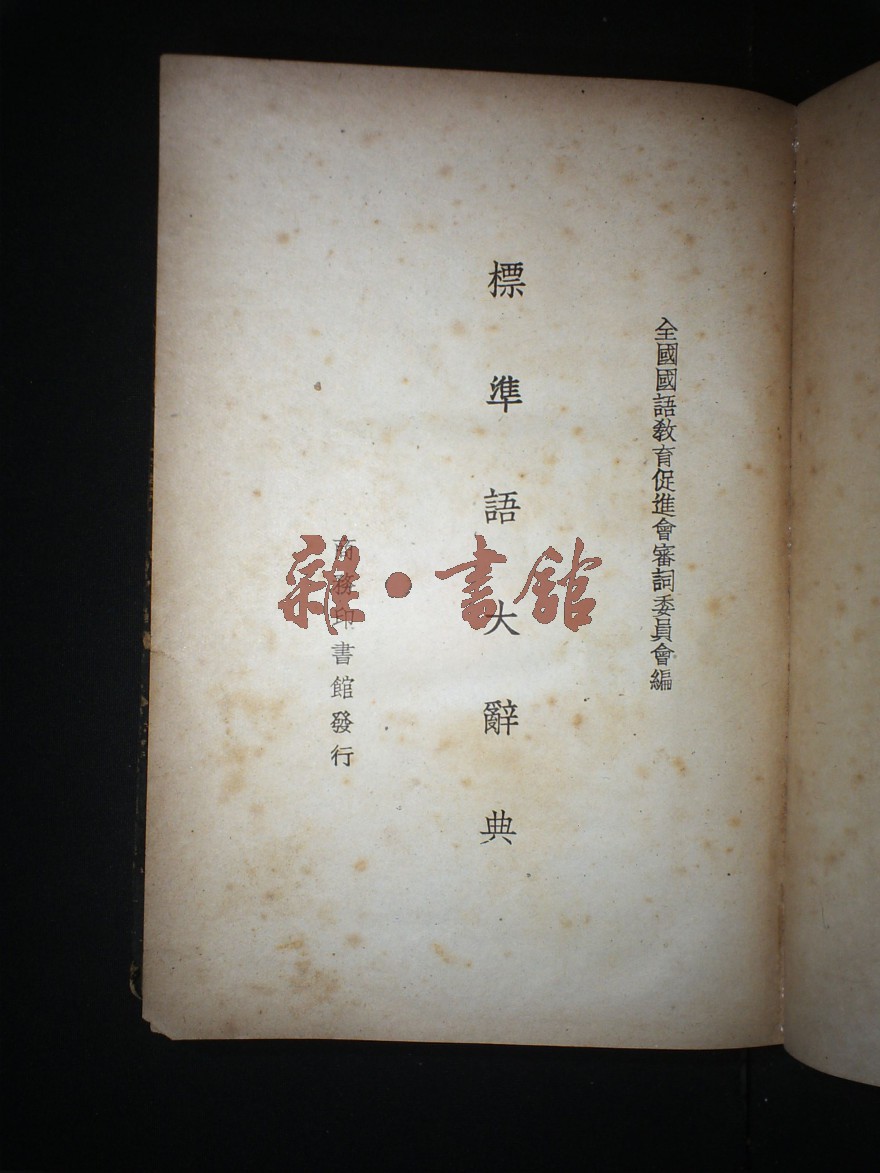 全國國語教育促進會審詞委員會編
標準語大辭典
商務印書館發行
雜·書館